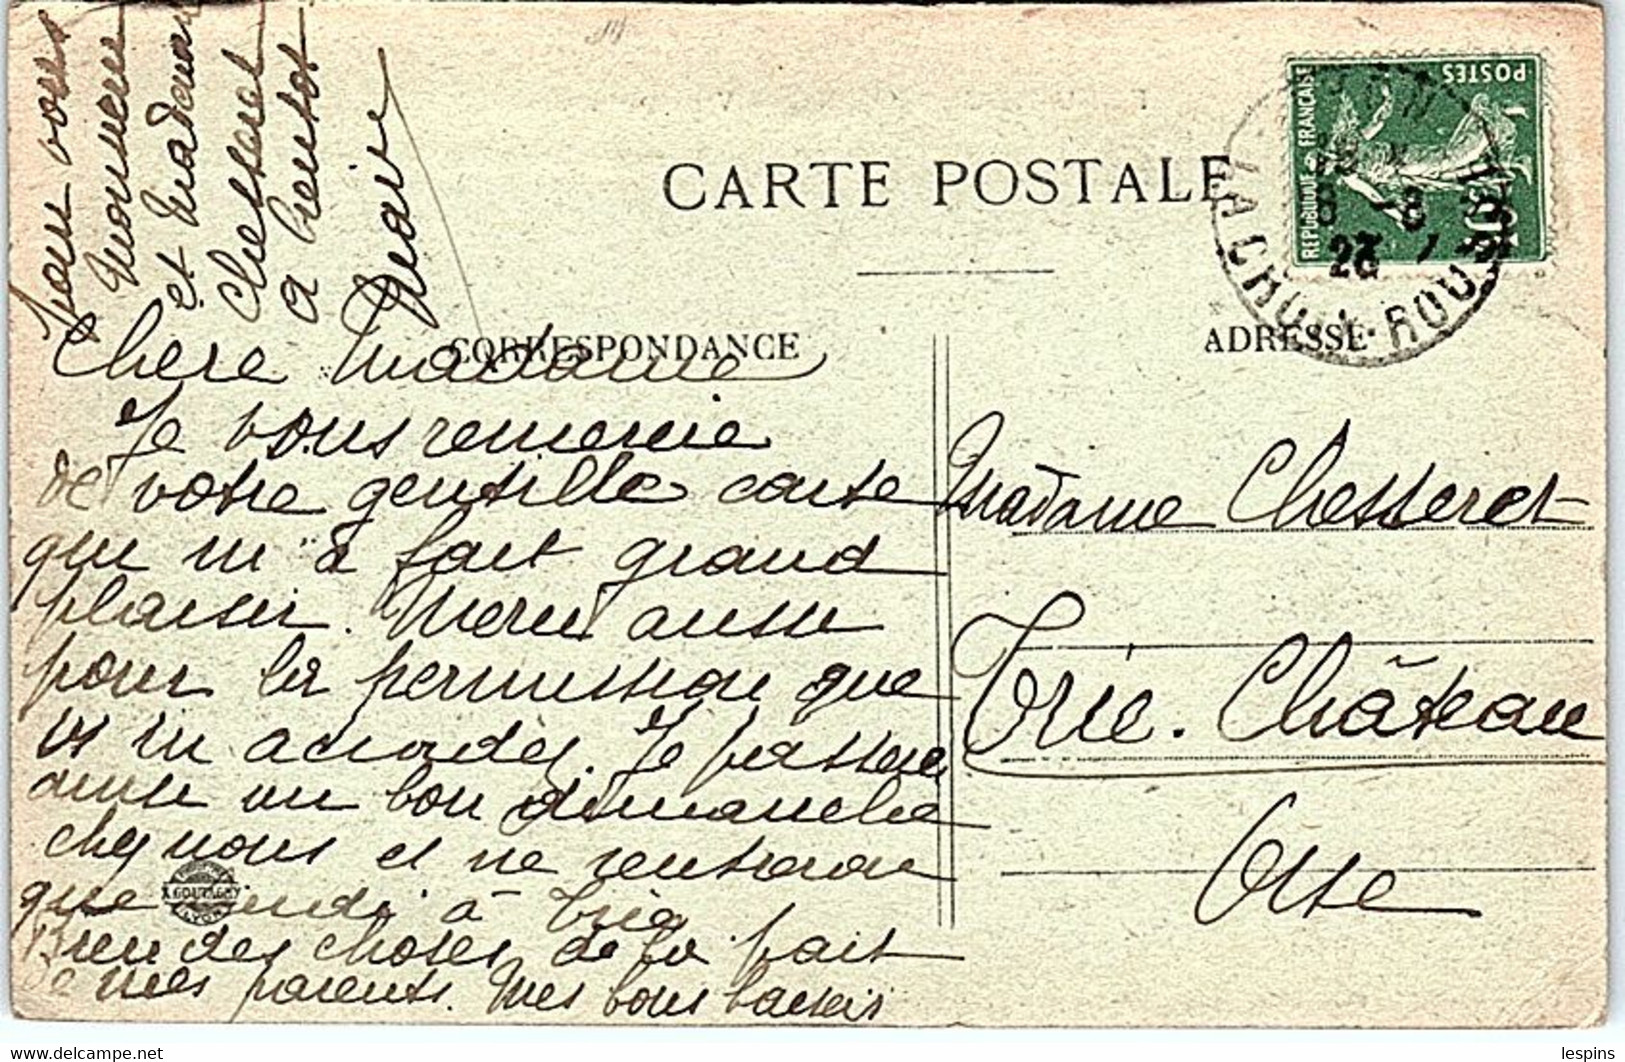 CARTE POSTALE
CORRESPONDANCE
ADRESSE
REPUBLIQUE FRANÇAISE
POSTES
LACHU ROU
8 -8
23
Chere Madame
Je vous remercie
de votre gentille carte
qui m'a fait grand
plaisir. Merci aussi
pour la permission que
vs m accordez. Je passerai
ainsi un bon dimanche
chez nous et ne rentrerai
que lundi à Trie
Bien des choses de la part
de mes parents. Mes bons baisers
pour vous
Monsieur
et Madame
Chesseret
a bientot
Madame Chesseret
Trie. Château
Oise
GOUTAGNY
LYON
lespins